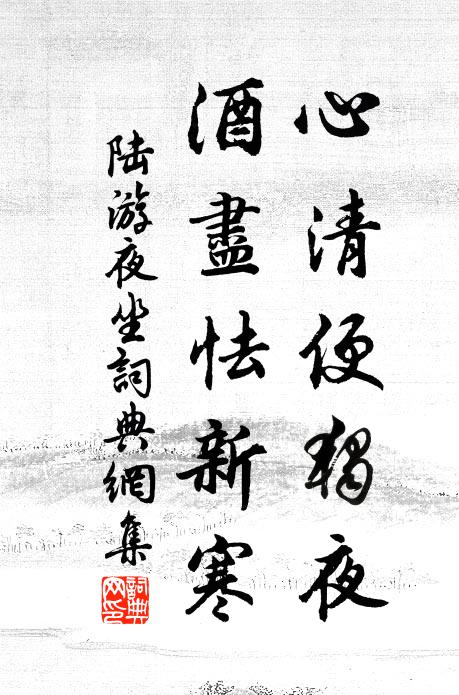 心清便獨夜
酒盡怯新寒
陸游夜坐詞典網集
詞典网印